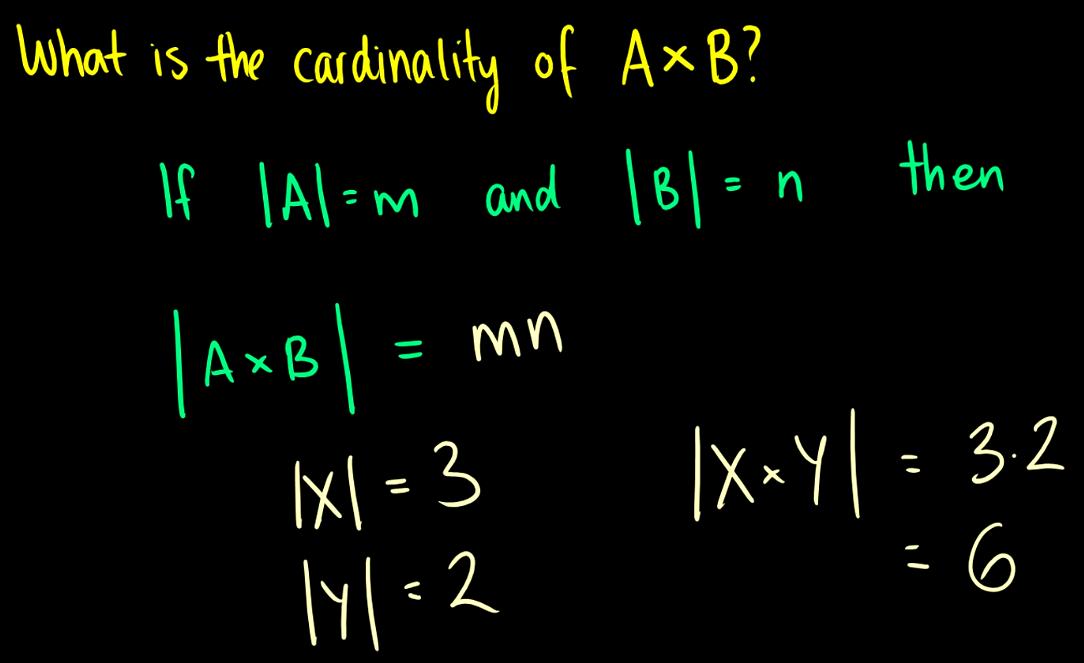 What is the cardinality of A×B?
If |A|=m and |B|=n then
|A×B| = mn
|X| = 3
|Y| = 2
|X×Y| = 3·2
= 6